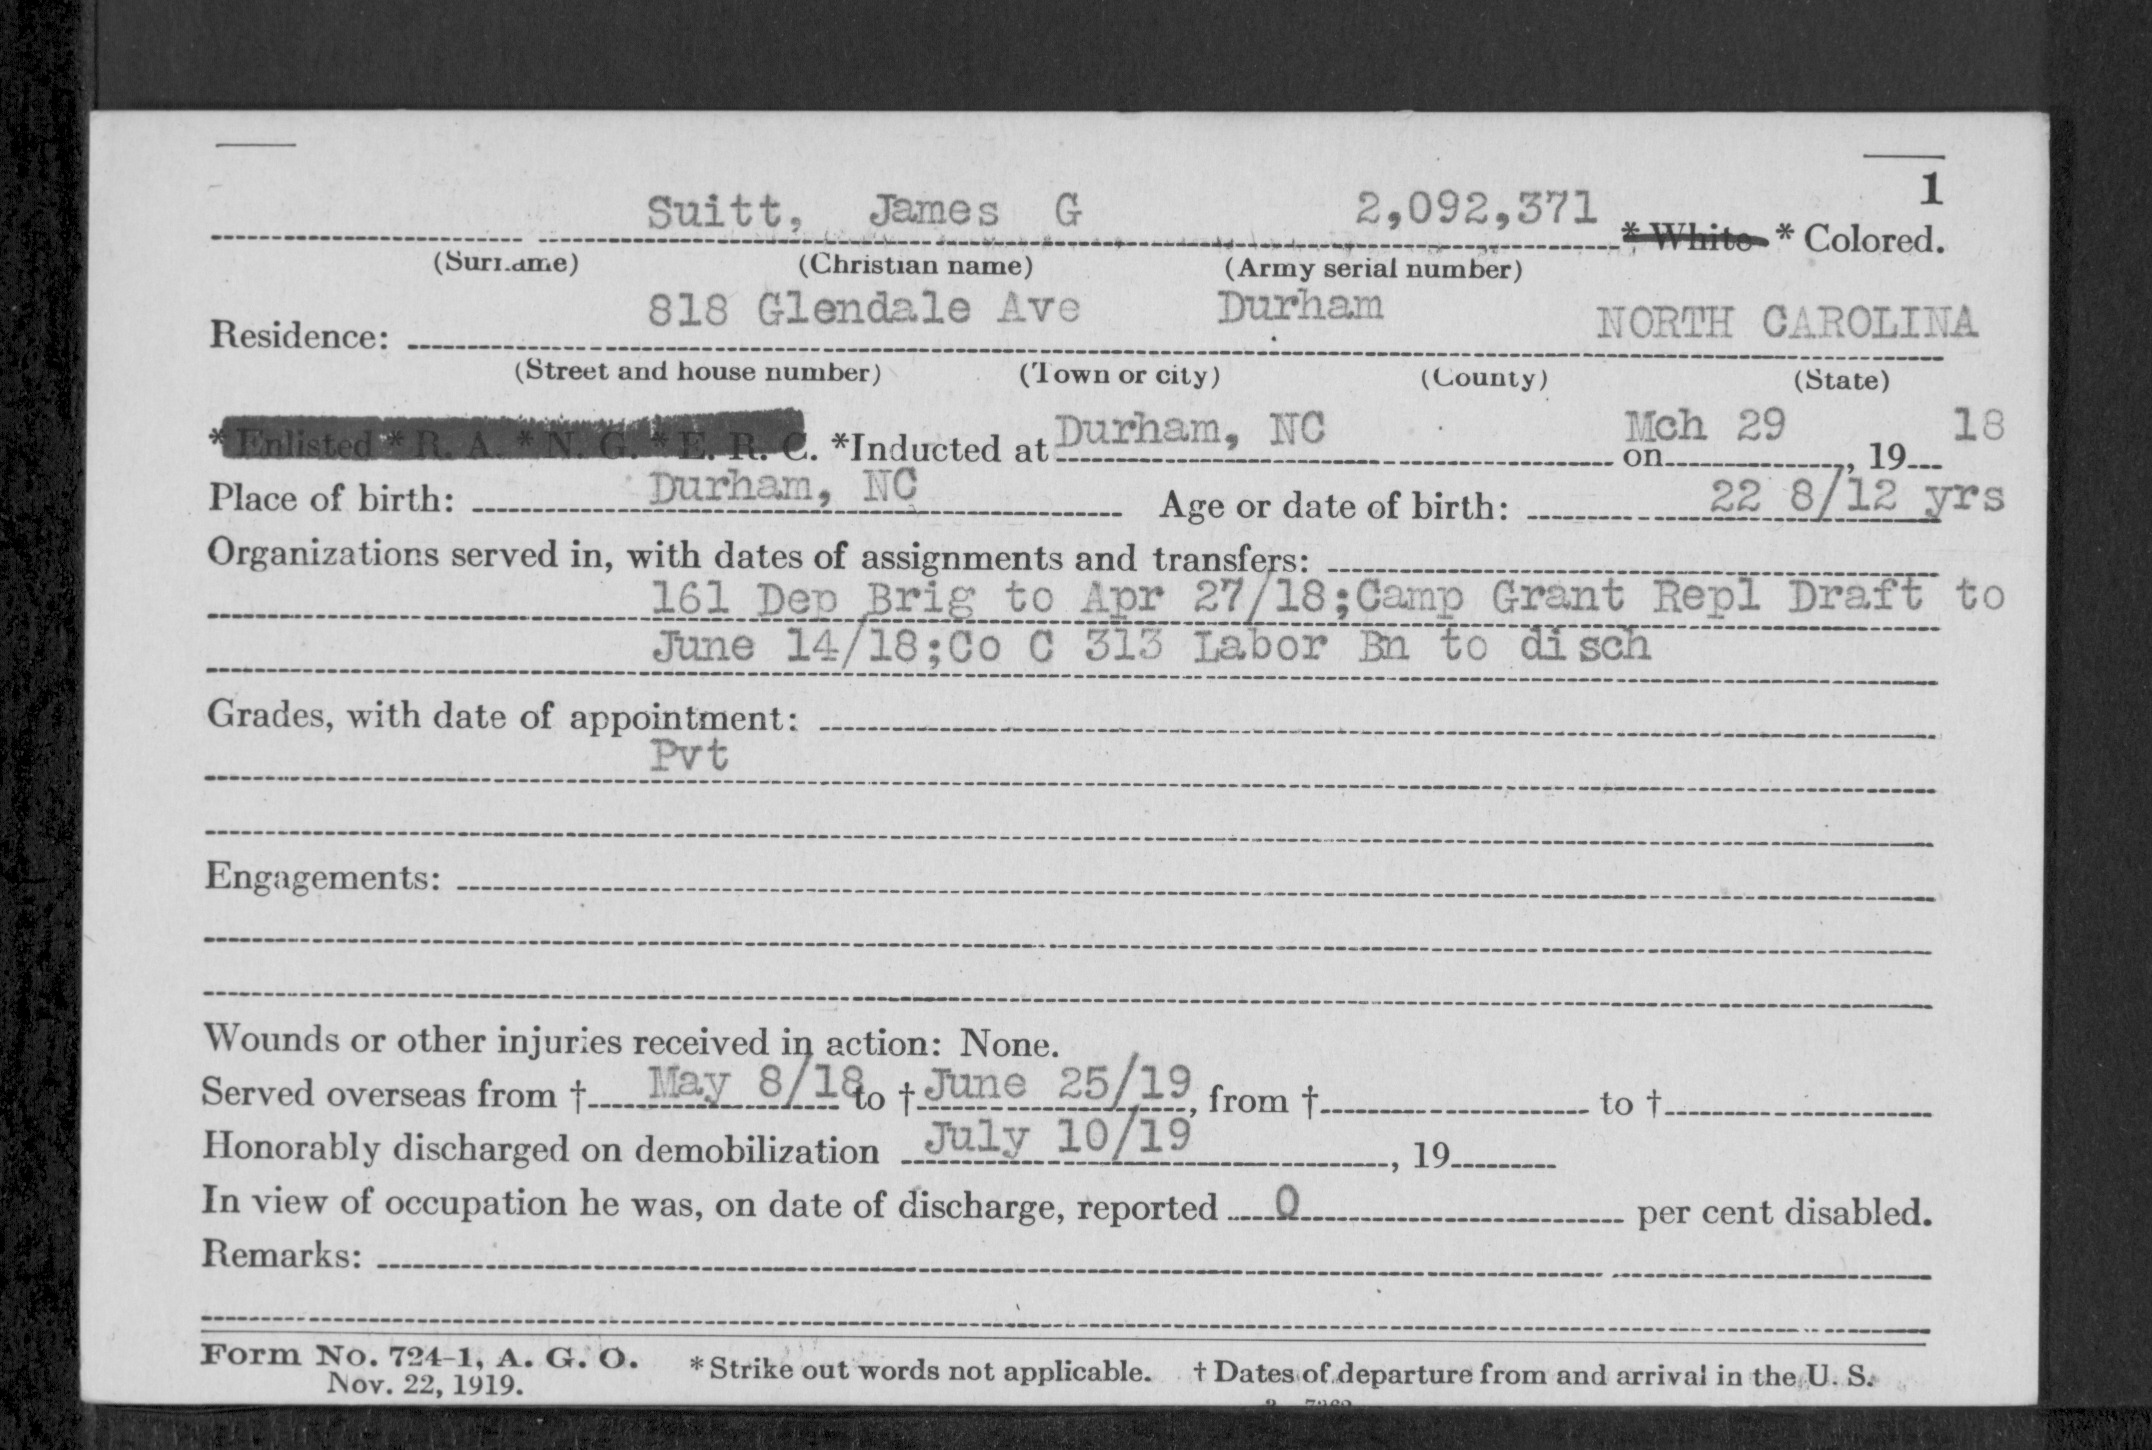 1
Suitt, James G 2,092,371 * White * Colored.
(Surname) (Christian name) (Army serial number)
818 Glendale Ave Durham NORTH CAROLINA
Residence:
(Street and house number) (Town or city) (County) (State)
* Enlisted * R. A. * N. G. * E. R. C. *Inducted at Durham, NC on Mch 29, 19 18
Place of birth: Durham, NC Age or date of birth: 22 8/12 yrs
Organizations served in, with dates of assignments and transfers:
161 Dep Brig to Apr 27/18;Camp Grant Repl Draft to
June 14/18;Co C 313 Labor Bn to disch
Grades, with date of appointment:
Pvt
Engagements:
Wounds or other injuries received in action: None.
Served overseas from † May 8/18 to † June 25/19, from † to †
Honorably discharged on demobilization July 10/19, 19
In view of occupation he was, on date of discharge, reported 0 per cent disabled.
Remarks:
Form No. 724-1, A. G. O. * Strike out words not applicable. † Dates of departure from and arrival in the U. S.
Nov. 22, 1919.